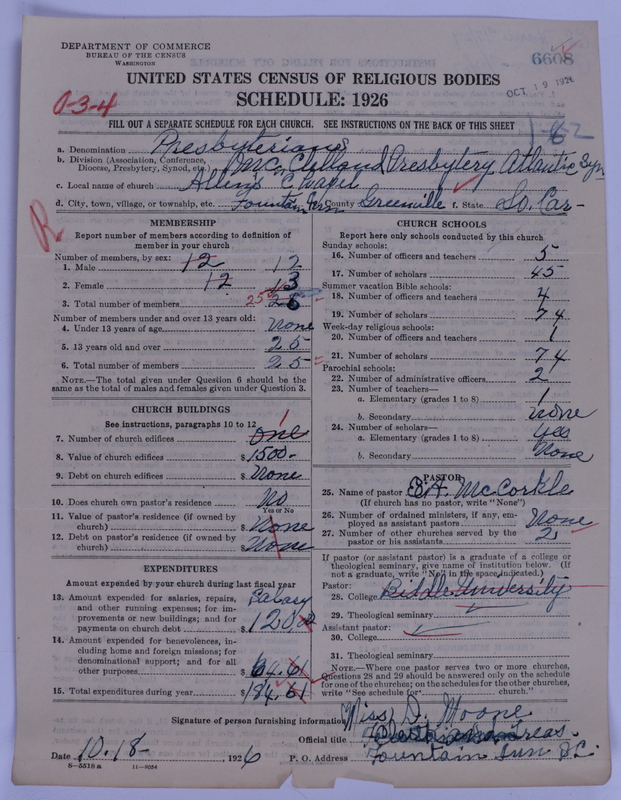 DEPARTMENT OF COMMERCE
BUREAU OF THE CENSUS
WASHINGTON
6608
UNITED STATES CENSUS OF RELIGIOUS BODIES
OCT. 19 1926
SCHEDULE: 1926
0-3-4
FILL OUT A SEPARATE SCHEDULE FOR EACH CHURCH. SEE INSTRUCTIONS ON THE BACK OF THIS SHEET
1-62
a. Denomination Presbyterians
b. Division (Association, Conference, Diocese, Presbytery, Synod, etc.) McClelland Presbytery Atlantic Syn
c. Local name of church Allens Chapel
d. City, town, village, or township, etc. Fountain Inn County Greenville f. State So. Car-
R
MEMBERSHIP
Report number of members according to definition of
member in your church
Number of members, by sex:
1. Male 12 12
2. Female 12 13
3. Total number of members 25 25
Number of members under and over 13 years old:
4. Under 13 years of age none
5. 13 years old and over 25
6. Total number of members 25
NOTE.—The total given under Question 6 should be
same as the total of males and females given under Question 3.
CHURCH BUILDINGS
See instructions, paragraphs 10 to 12
7. Number of church edifices one 1
8. Value of church edifices $1500-
9. Debt on church edifices $ None
10. Does church own pastor's residence No
Yes or No
11. Value of pastor's residence (if owned by
church) $ None
12. Debt on pastor's residence (if owned by
church) $ None
EXPENDITURES
Amount expended by your church during last fiscal year
13. Amount expended for salaries, repairs, Salary
and other running expenses; for im-
provements or new buildings; and for
payments on church debt $ 120
14. Amount expended for benevolences, in-
cluding home and foreign missions; for
denominational support; and for all
other purposes $ 64.61
15. Total expenditures during year $184.61
CHURCH SCHOOLS
Report here only schools conducted by this church
Sunday schools:
16. Number of officers and teachers 5
17. Number of scholars 45
Summer vacation Bible schools:
18. Number of officers and teachers 4
19. Number of scholars 74
Week-day religious schools:
20. Number of officers and teachers 1
21. Number of scholars 74
Parochial schools:
22. Number of administrative officers 2
23. Number of teachers—
a. Elementary (grades 1 to 8) 1
b. Secondary none
24. Number of scholars—
a. Elementary (grades 1 to 8) yes
b. Secondary None
PASTOR
25. Name of pastor McCorkle
(If church has no pastor, write "None")
26. Number of ordained ministers, if any, em-
ployed as assistant pastors None
27. Number of other churches served by the
pastor or his assistants 2
If pastor (or assistant pastor) is a graduate of a college or
theological seminary, give name of institution below. (If
not a graduate, write "No" in the space indicated.)
Pastor:
28. College Biddle University
29. Theological seminary
Assistant pastor:
30. College
31. Theological seminary
NOTE.—Where one pastor serves two or more churches,
Questions 28 and 29 should be answered only on the schedule
for one of the churches; on the schedules for the other churches,
write "See schedule for church."
Signature of person furnishing information Miss D. Moone
Official title Treas.
Date 10-18- 1926 P. O. Address Fountain Inn S.C.
8-5518a 11-9054